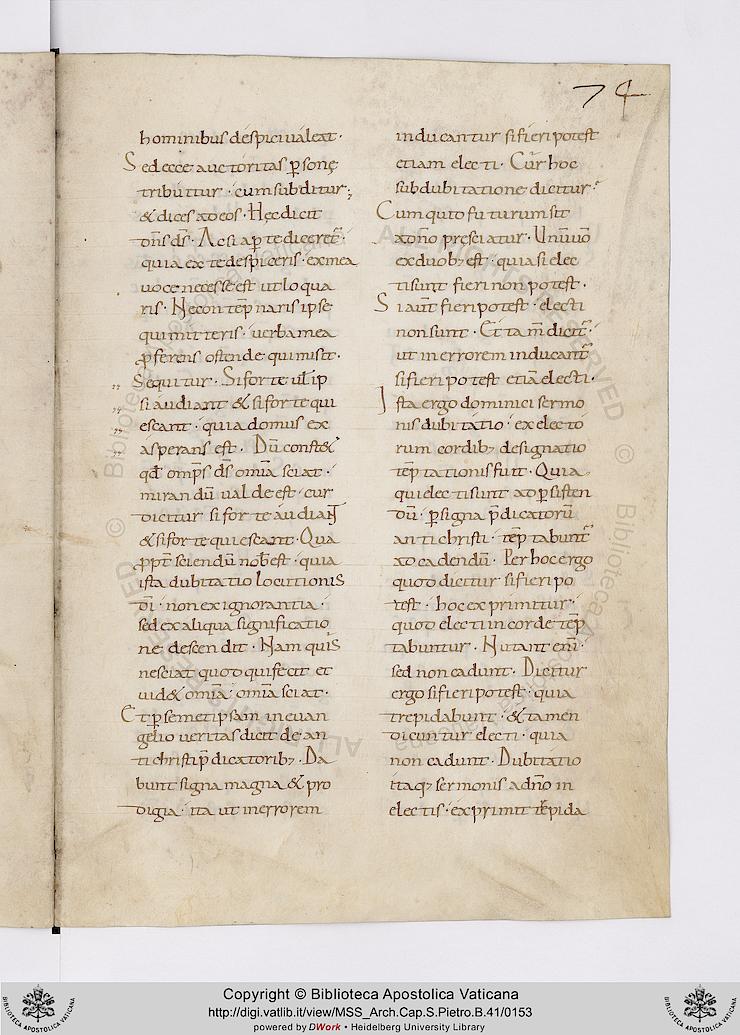 74
hominibus despici valeat·
Sed ecce auctoritas p̲sonę
tribuitur· cum subditur;
& dices ad eos· Hęc dicit
dn̄s ds̄· Ac si ap̲te diceret̄·
quia ex te despiceris· ex mea
voce necesse est ut loqua
ris· Ne contēp̲naris ipse
qui mitteris· verba mea
p̲ferens ostende qui misit·
Sequitur· Si forte vel ip
si audiant & si forte qui
escant· quia domus ex
asperans est· Dū const&
qd̄ omp̄s ds̄ omīa sciat·
mirandū valde est· cur
dicitur si forte audiaN̄T
& si forte quiescant· Qua
p̲pt̄ sciendū nob̄ est· quia
ista dubitatio locutionis
dī· non ex ignorantia·
sed ex aliqua significatio
ne descendit· Nam quis
nesciat quod qui fecit et
vid& omīa· omīa sciat·
Et p̲ semetipsam in evan
gelio veritas dicit de an
tichristi p̄dicatorib;· Da
bunt signa magna & pro
digia· ita ut in errorem
inducantur si fieri potest
etiam electi· Cur hoc
sub dubitatione dicitur·
Cum quid futurum sit
a dn̄o pręsciatur· Unū v̄o
ex duob; est· quia si elec
ti sunt fieri non potest·
Si aut̄ fieri potest· electi
non sunt· Et tam̄ dicit̄·
ut in errorem inducant̄
si fieri potest etiā electi·
Ista ergo dominici sermo
nis dubitatio· ex electo
rum cordib; designatio
tēptationis fuit· Quia
qui electi sunt ad p̲sisten
dū· p̲ signa p̄dicatorū
antichristi· tēptabunt̄
ad cadendū· Per hoc ergo
quod dicitur si fieri po
test· hoc exprimitur·
quod electi in corde tēp
tabuntur· Nutant enī·
sed non cadunt· Dicitur
ergo si fieri potest· quia
trepidabunt· & tamen
dicuntur electi· quia
non cadunt· Dubitatio
itaq; sermonis a dn̄o in
electis· exprimit trepida
Copyright © Biblioteca Apostolica Vaticana
http://digi.vatlib.it/view/MSS_Arch.Cap.S.Pietro.B.41/0153
powered by DWork • Heidelberg University Library